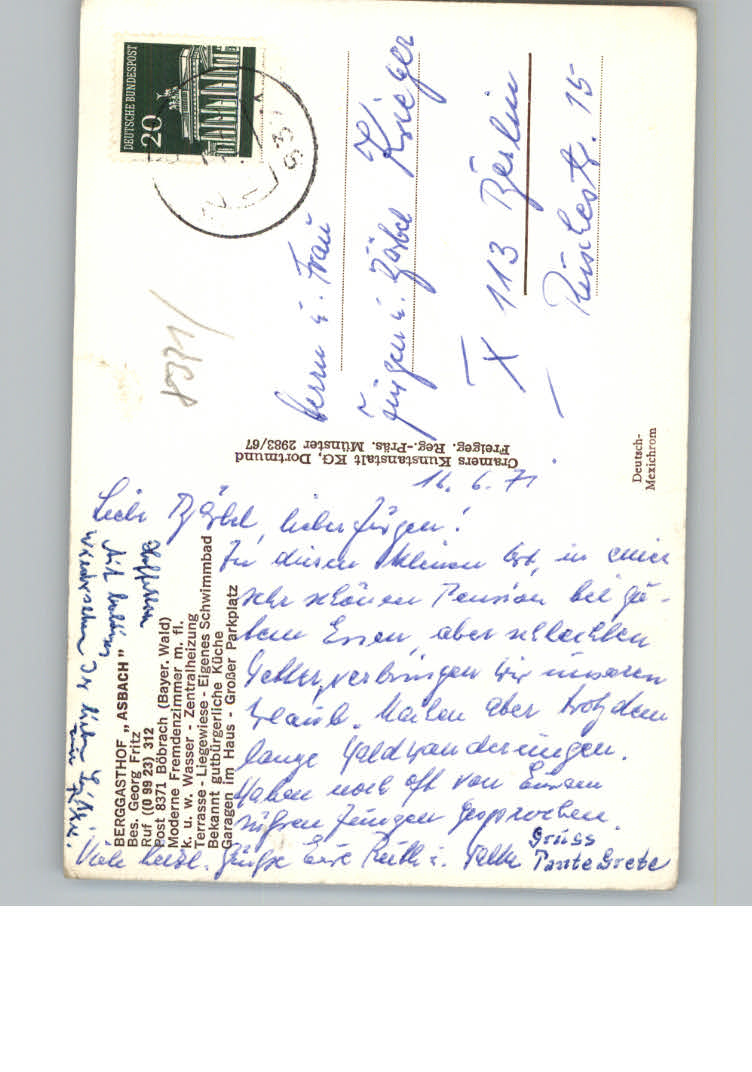 BERGGASTHOF „ASBACH"
Bes. Georg Fritz
Ruf ((0 99 23) 312
Post 8371 Böbrach (Bayer. Wald)
Moderne Fremdenzimmer m. fl.
k. u. w. Wasser - Zentralheizung
Terrasse - Liegewiese - Eigenes Schwimmbad
Bekannt gutbürgerliche Küche
Garagen im Haus - Großer Parkplatz
16. 6. 71
Liebe Bärbel, lieber Jürgen!
In diesem kleinen Ort, in einer
sehr schönen Pension bei gu-
tem Essen, aber schlechten
Wetter, verbringen wir unseren
Urlaub. Machen aber trotzdem
lange Waldwanderungen.
Haben noch oft von Eurem
süßen Jungen gesprochen.
Viele herzl. Grüße Eure Ruth u.
Gruss
Tante Grete
Hoffentlich
wiedersehen
Cramers Kunstanstalt KG, Dortmund
Freigeg. Reg.-Präs. Münster 2983/67
Deutsch-
Mexichrom
DEUTSCHE BUNDESPOST
20
8371/
Herrn u. Frau
Jürgen u. Bärbel Krieger
X 113 Berlin
15